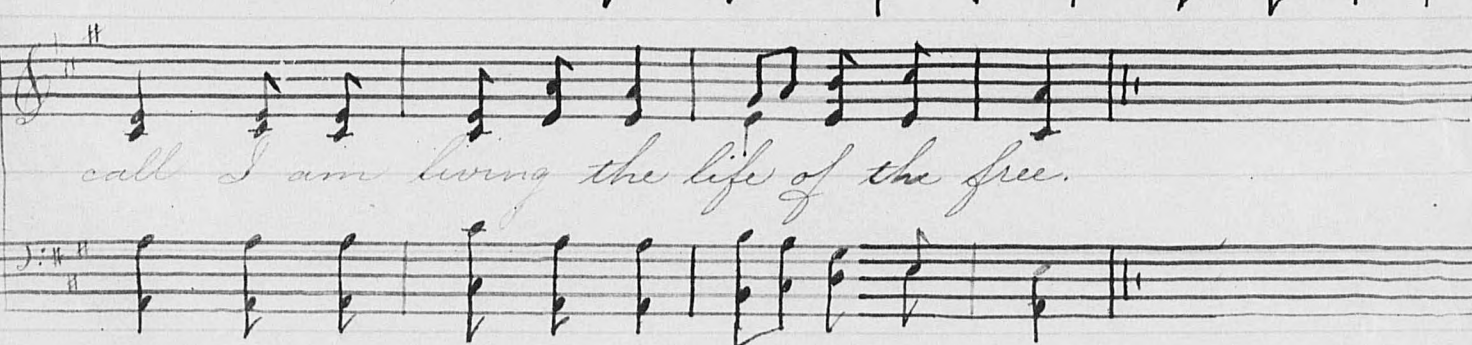 call I am living the life of the free.